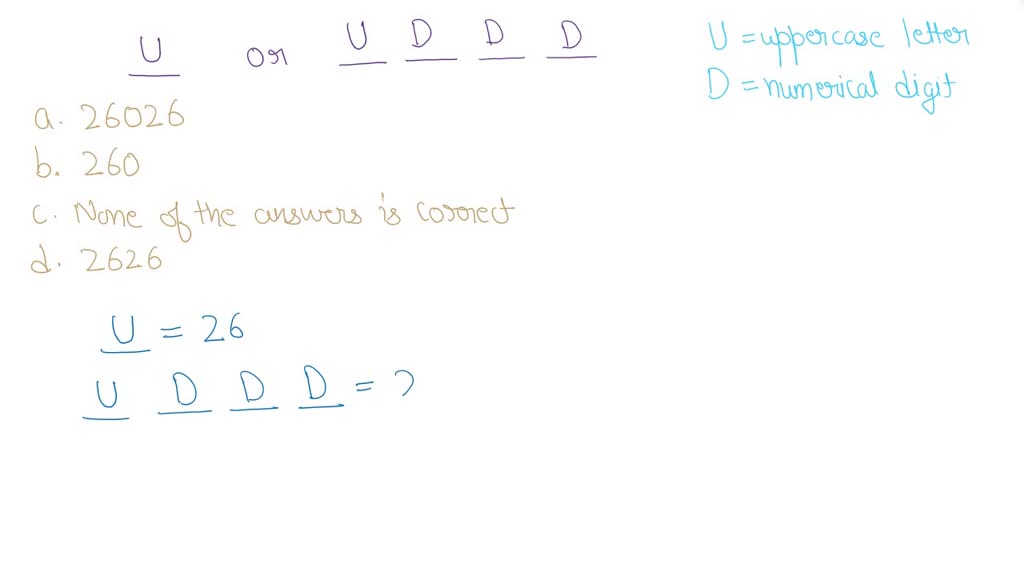 U or U D D D
U = uppercase letter
D = numerical digit
a. 26026
b. 260
c. None of the answers is correct
d. 2626
U = 26
U D D D = 2